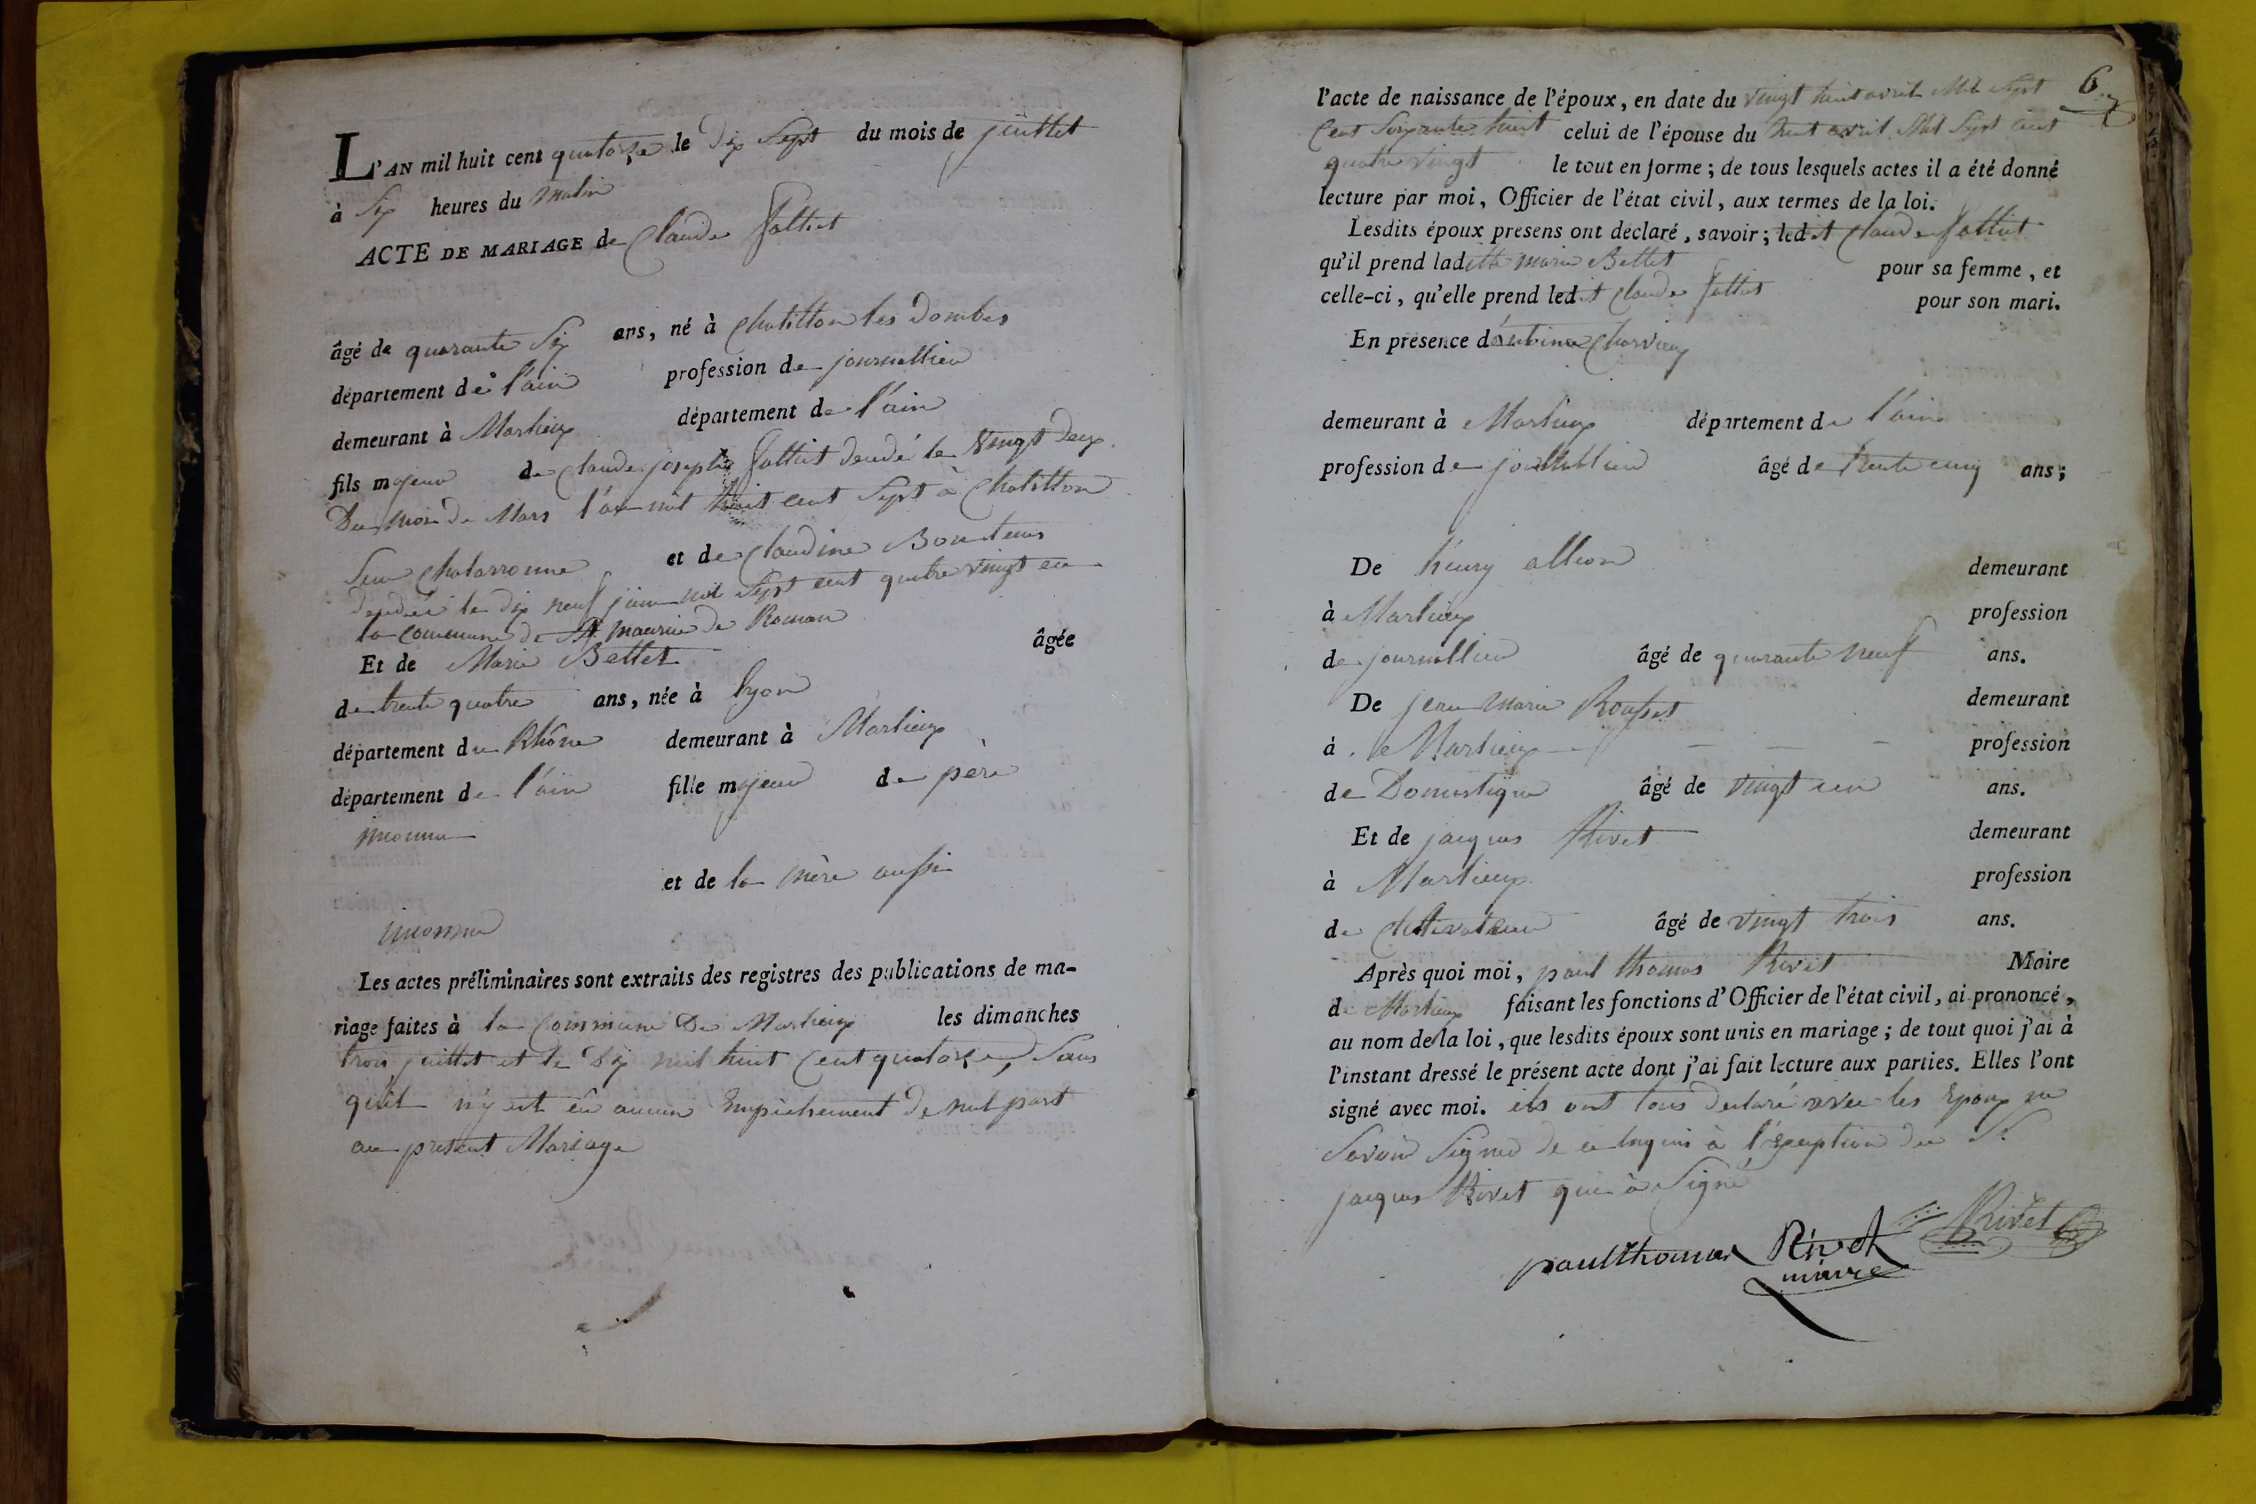 L'AN mil huit cent quatorze le Dix Sept du mois de juillet
à Six heures du Matin
ACTE DE MARIAGE de Claude Folliet
âgé de quarante Six ans, né à Chatillon les Dombes
département de l'ain profession de journallier
demeurant à Marlieux département de l'ain
fils majeur de Claude joseph Folliet décédé le Vingt deux
Du mois de Mars l'an mil huit cent Sept à Chatillon
Sur Chalaronne et de Claudine
décédée le dix neuf juin mil Sept cent quatre vingt en
la commune de St maurice de Roman
Et de Marie Bellet âgée
de trente quatre ans, née à lyon
département du Rhône demeurant à Marlieux
département de l'ain fille majeur de père
inconnu
et de la mère aussi
inconnu
Les actes préliminaires sont extraits des registres des publications de ma-
riage faites à la Commune De Marlieux les dimanches
trois juillet et le Dix mil huit Cent quatorze, Sans
qu'il n'y ait eû aucun Empêchement de nul part
au present Mariage
6
l'acte de naissance de l'époux, en date du vingt huit avril Mil Sept
Cent Soixante huit celui de l'épouse du huit avril Mil Sept cent
quatre vingt le tout en forme; de tous lesquels actes il a été donné
lecture par moi, Officier de l'état civil, aux termes de la loi.
Lesdits époux presens ont declaré, savoir; ledit Claude Folliet
qu'il prend ladite marie Bellet pour sa femme, et
celle-ci, qu'elle prend ledit Claude folliet pour son mari.
En présence d'antoine Charvieux
demeurant à Marlieux département de l'ain
profession de journallier âgé de trente cinq ans;
De henry allion demeurant
à Marlieux profession
de journallier âgé de quarante neuf ans.
De jean Marie Rousset demeurant
à Marlieux profession
de Domestique âgé de vingt un ans.
Et de jacques Rivet demeurant
à Marlieux profession
de Cultivateur âgé de vingt trois ans.
Après quoi moi, paul thomas Rivet Maire
de Marlieux faisant les fonctions d'Officier de l'état civil, ai prononcé,
au nom de la loi, que lesdits époux sont unis en mariage; de tout quoi j'ai à
l'instant dressé le présent acte dont j'ai fait lecture aux parties. Elles l'ont
signé avec moi. ils ont tous declaré avec les Epoux ne
Savoir Signer de ce Enquis à l'éxception du Sr
jacques Rivet qui à Signé
paul thomas Rivet Rivet
maire